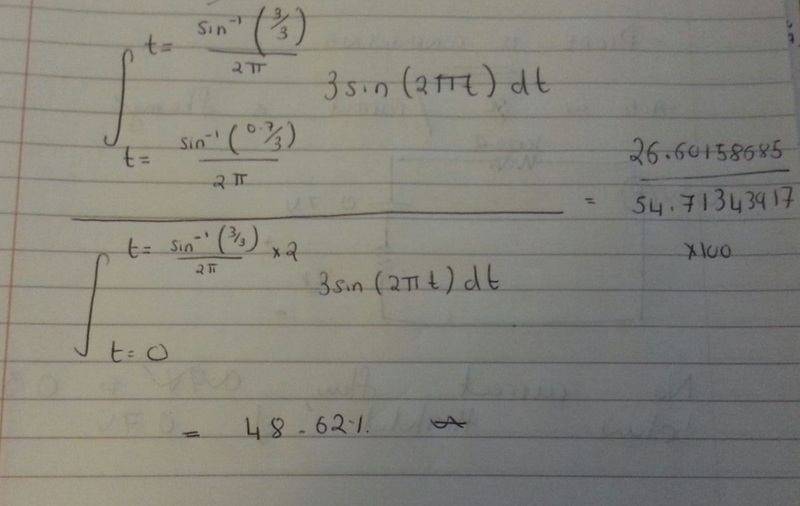 ∫ t= sin⁻¹(3/3) / 2π
t= sin⁻¹(0.7/3) / 2π
3sin(2πt) dt
∫ t= sin⁻¹(3/3) / 2π ×2
t=0
3sin(2πt) dt
= 26.60158685 / 54.71343917
×100
= 48.62%